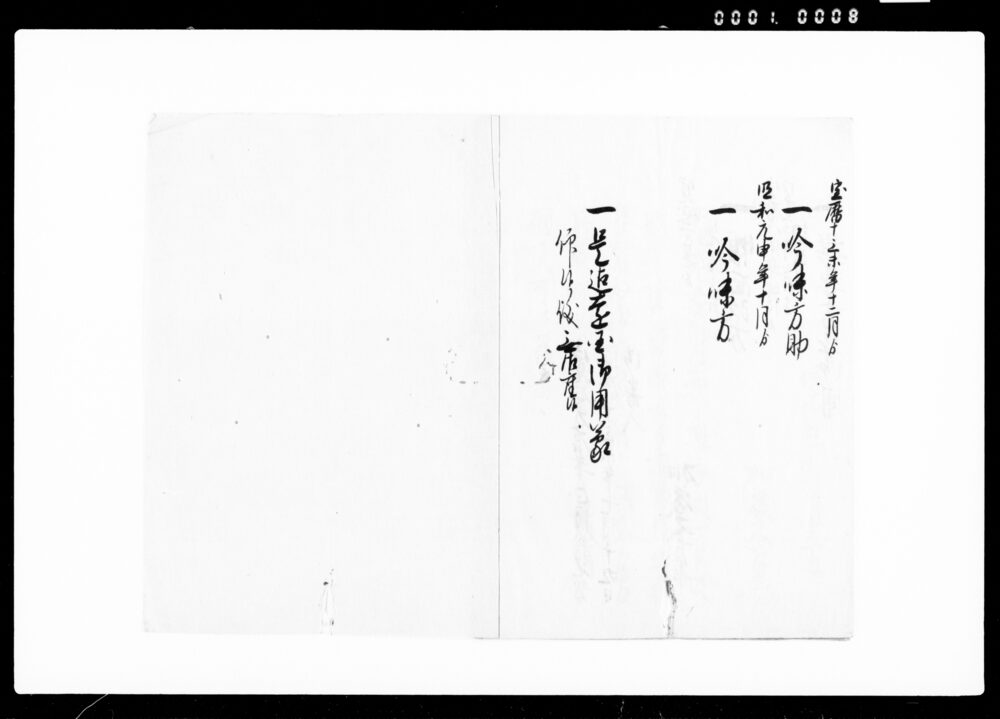 0001 0008
宝暦十三未年十二月ゟ
一吟味方助
明和元申年十月ゟ
一吟味方
一是迄遠国御用蒙
仰候儀無御座候